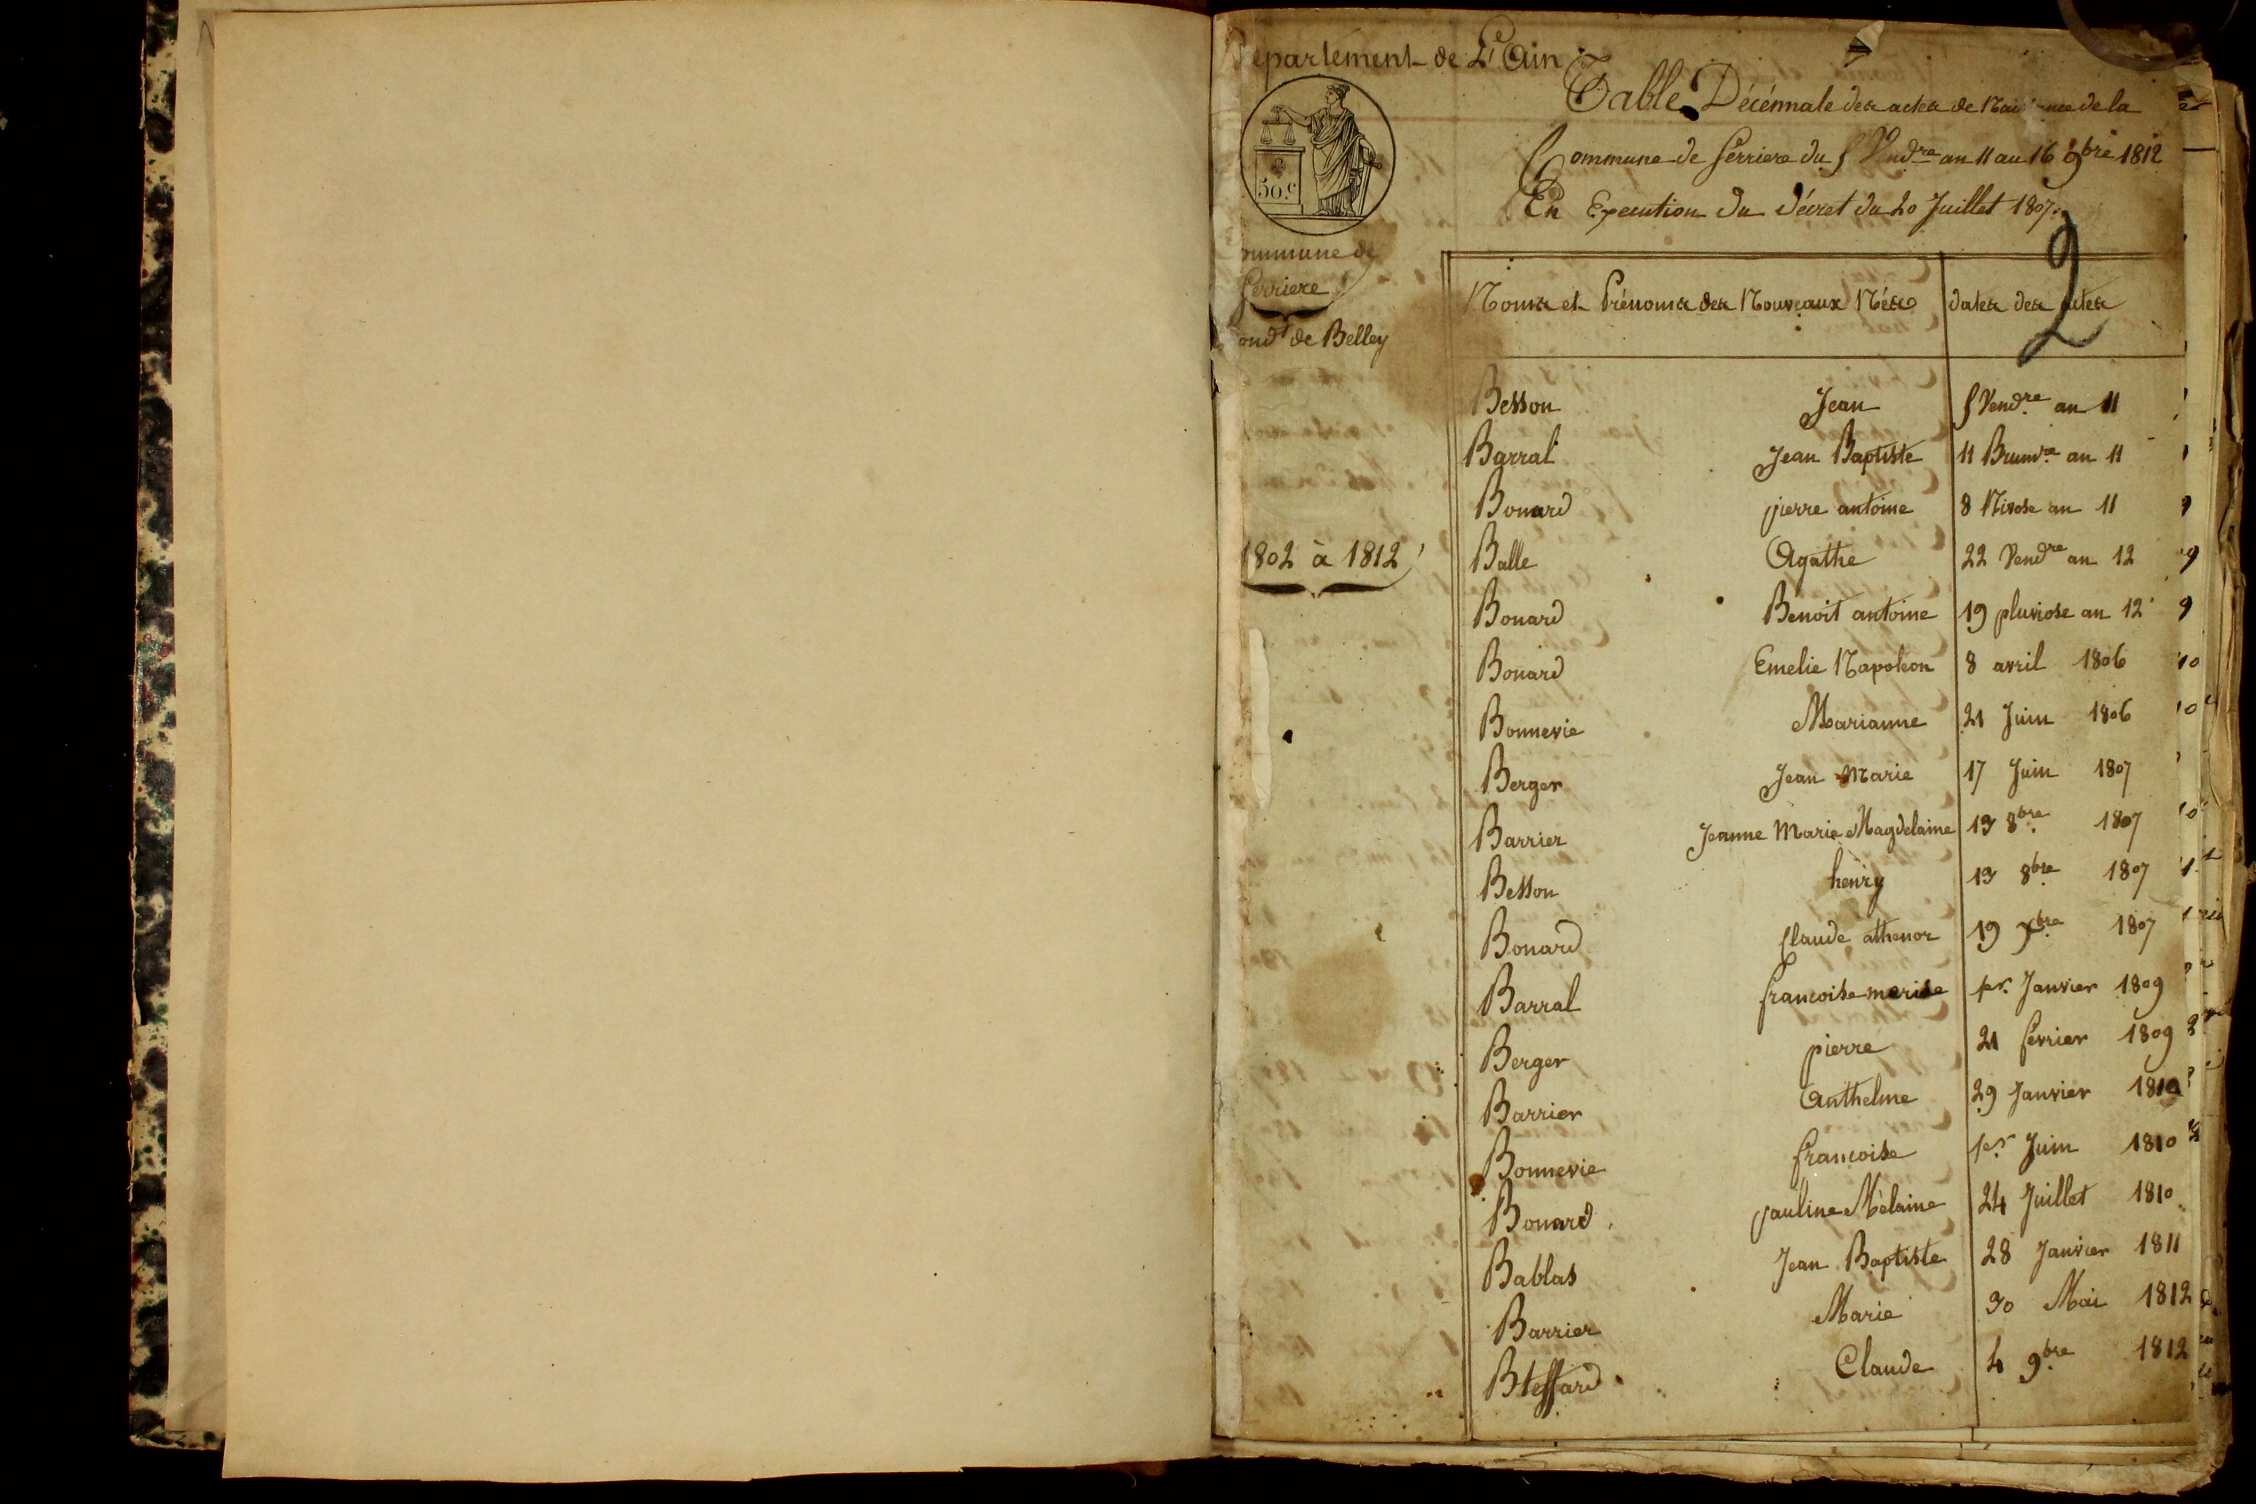 Département de L'Ain
Table Décénnale des actes de Naissance de la
Commune de Serriere du 5 Vendre an 11 au 16 9bre 1812
En Execution du décret du 20 Juillet 1807.
50.C
Commune de
Serriere
ondt de Belley
2
Noms et Prénoms des Nouveaux Nés dates des actes
1802 à 1812
Besson Jean 5 Vendre an 11
Barral Jean Baptiste 11 Brumre an 11
Bonard pierre antoine 8 Nivose an 11
Balle Agathe 22 Vendre an 12
Bonard Benoit antoine 19 pluviose an 12
Bonard Emelie Napoleon 8 avril 1806
Bonnevie Marianne 21 Juin 1806
Berger Jean Marie 17 Juin 1807
Barrier Jeanne Marie Magdelaine 13 8bre 1807
Besson henry 13 8bre 1807
Bonard Claude athenor 19 Xbre 1807
Barral francoise marise 1er Janvier 1809
Berger pierre 21 fevrier 1809
Barrier Anthelme 29 Janvier 1810
Bonnevie francoise 1er Juin 1810
Bonard pauline Mélaine 24 Juillet 1810
Bablas Jean Baptiste 28 Janvier 1811
Barrier Marie 30 Mai 1812
Bleffard Claude 4 9bre 1812